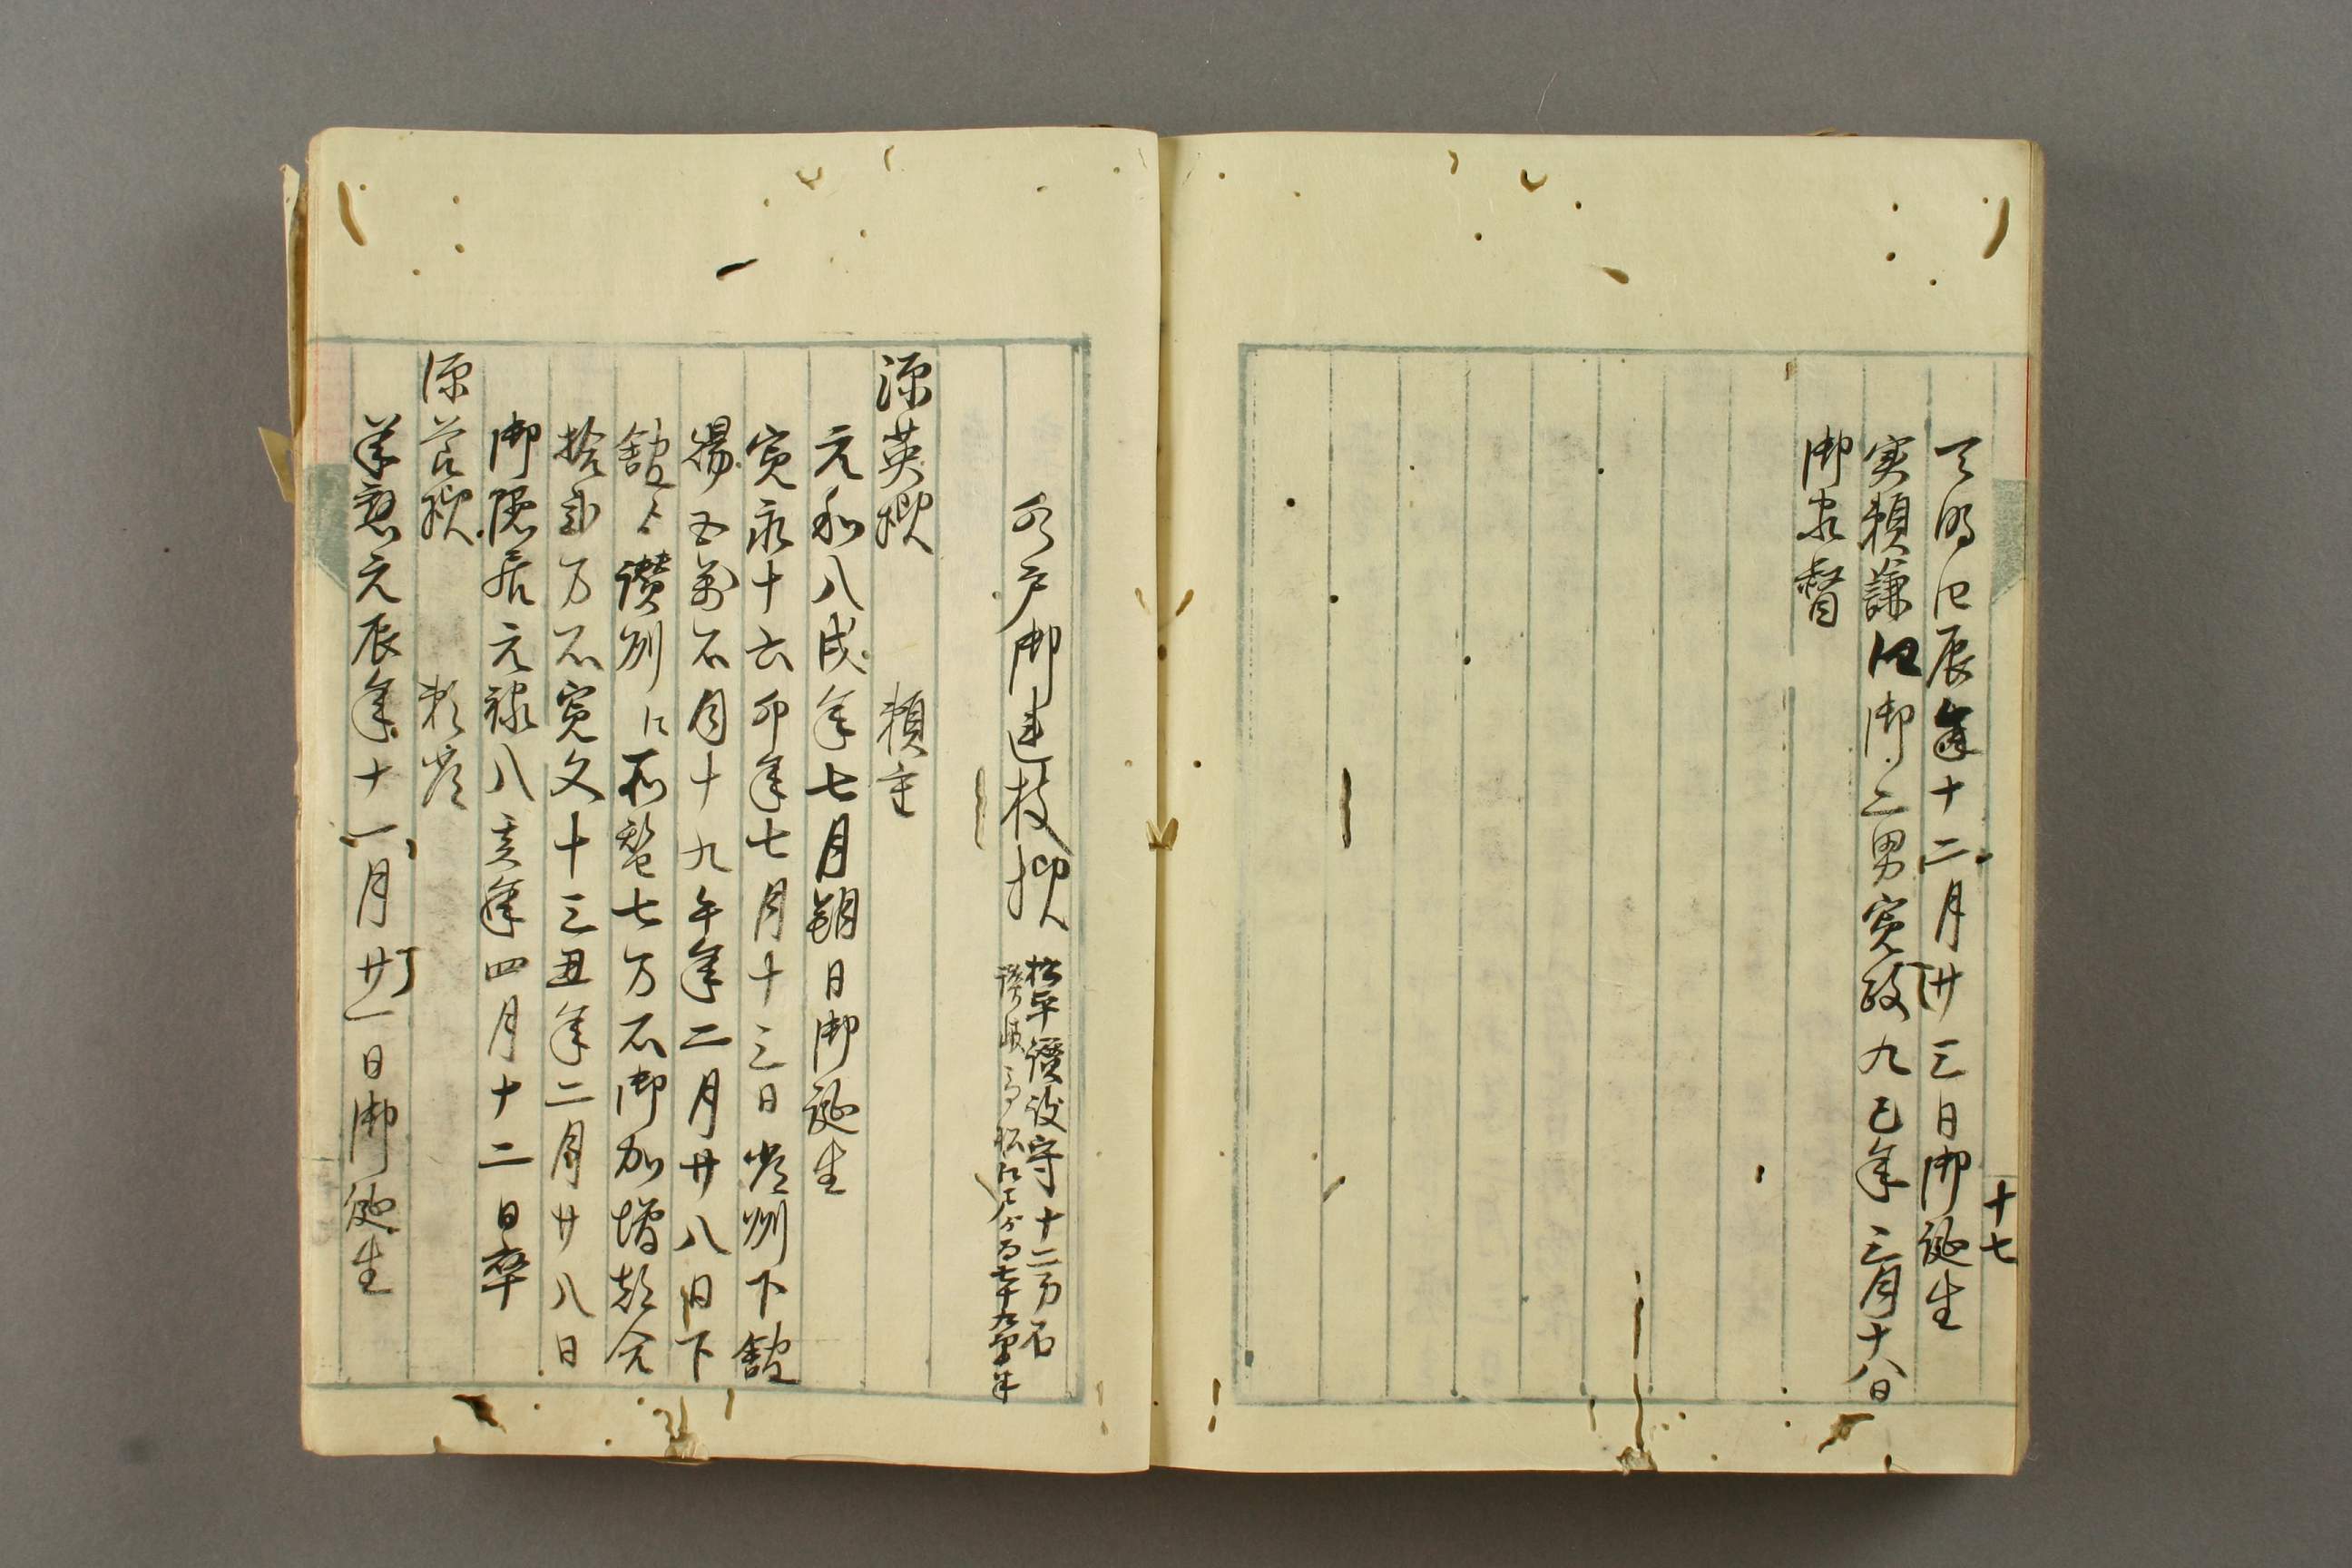 十七
天明四辰年十二月廿三日御誕生
実頼謙公御二男寛政九巳年三月十八日
御家督
水戸御連枝様
松平讃岐守十二万石
讃岐高松江戸ゟ百七十九里半
源英様 頼重
元和八戌年七月朔日御誕生
寛永十六卯年七月十三日常州下館
賜五万石同十九午年二月廿八日下
館ゟ讃州江所替七万石御加増都合
拾弐万石寛文十三丑年二月廿八日
御隠居元禄八亥年四月十二日卒
源節様 頼常
承応元辰年十一月廿一日御誕生